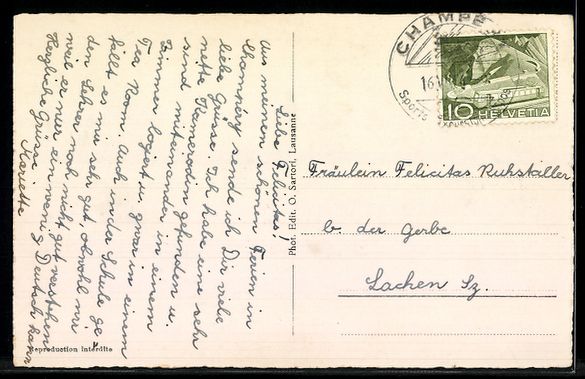 Liebe Felicitas!
Aus meinen schönen Ferien in
Champery sende ich Dir viele
liebe Grüsse. Ich habe eine sehr
nette Kameradin gefunden u.
sind miteinander in einem
Zimmer logiert u. zwar in einem
Tea Room. Auch in der Schule ge
fällt es mir sehr gut, obwohl wir
den Lehrer noch nicht gut verstehen
weil er nur ein wenig Deutsch kann
Herzliche Grüsse
Mariette
Reproduction interdite
Phot. Edit. O. Sartori, Lausanne
CHAMPE
16
Sports
10 HELVETIA
Fräulein Felicitas Ruhstaller
b. der Gerbe
Lachen Sz.